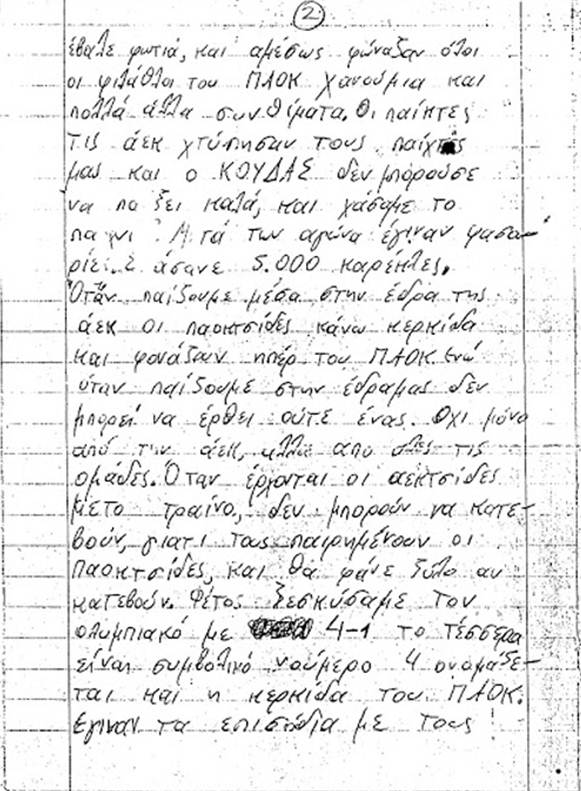 2
έβαλε φωτιά, και αμέσως φώναξαν όλοι
οι φιλάθλοι του ΠΑΟΚ χανούμια και
πολλά άλλα συνθίματα. Οι παίκτες
τις άεκ χτύπησαν τους παίχτες
μας και ο ΚΟΥΔΑΣ δεν μπορούσε
να παξει καλά, και χάσαμε το
Μ τά των αγώνα έγιναν φασα
ρίες. άσανε 5.000 καρέκλες.
Όταν παίζουμε μέσα στην έδρα της
άεκ οι παοκτσίδες κάνω κερκίδα
και φονάζουν ηπέρ του ΠΑΟΚ. Ενώ
όταν παίζουμε στην έδραμας δεν
μπορεί να έρθει ούτε ένας. Οχι μόνο
από την άεκ, αλλα απο όλες τις
ομάδες. Όταν έρχονται οι αεκτσίδες
μετο τραίνο, δεν μπορούν να κατε-
βούν, γιατι τους παιρημένουν οι
Παοκτσίδες, και θα φάνε ξύλο αν
κατεβούν. Φέτος ξεσκύσαμε τον
ολυμπιακό με 4-1 το τέσσερα
είναι συμβολικό νούμερο 4 ονομάζε-
ται και η κερκίδα του ΠΑΟΚ.
Εγιναν τα επισόδια με τους